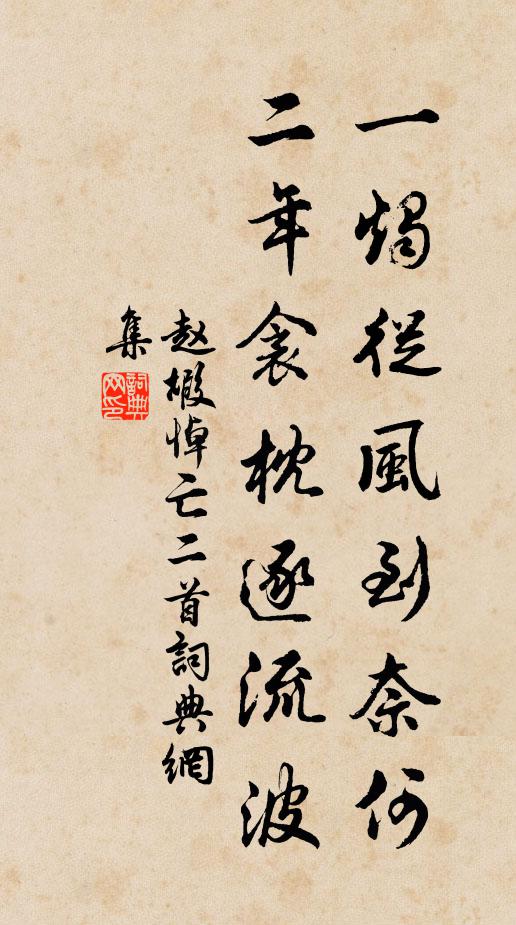 一燭從風到奈何
二年衾枕逐流波
赵嘏悼亡二首詞典網
集
詞典網印